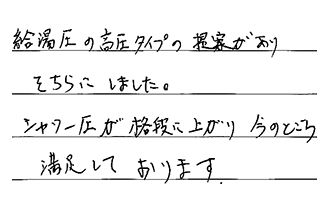 給湯圧の高圧タイプの提案があり
そちらにしました。
シャワー圧が格段に上がり 今のところ
満足して おります.